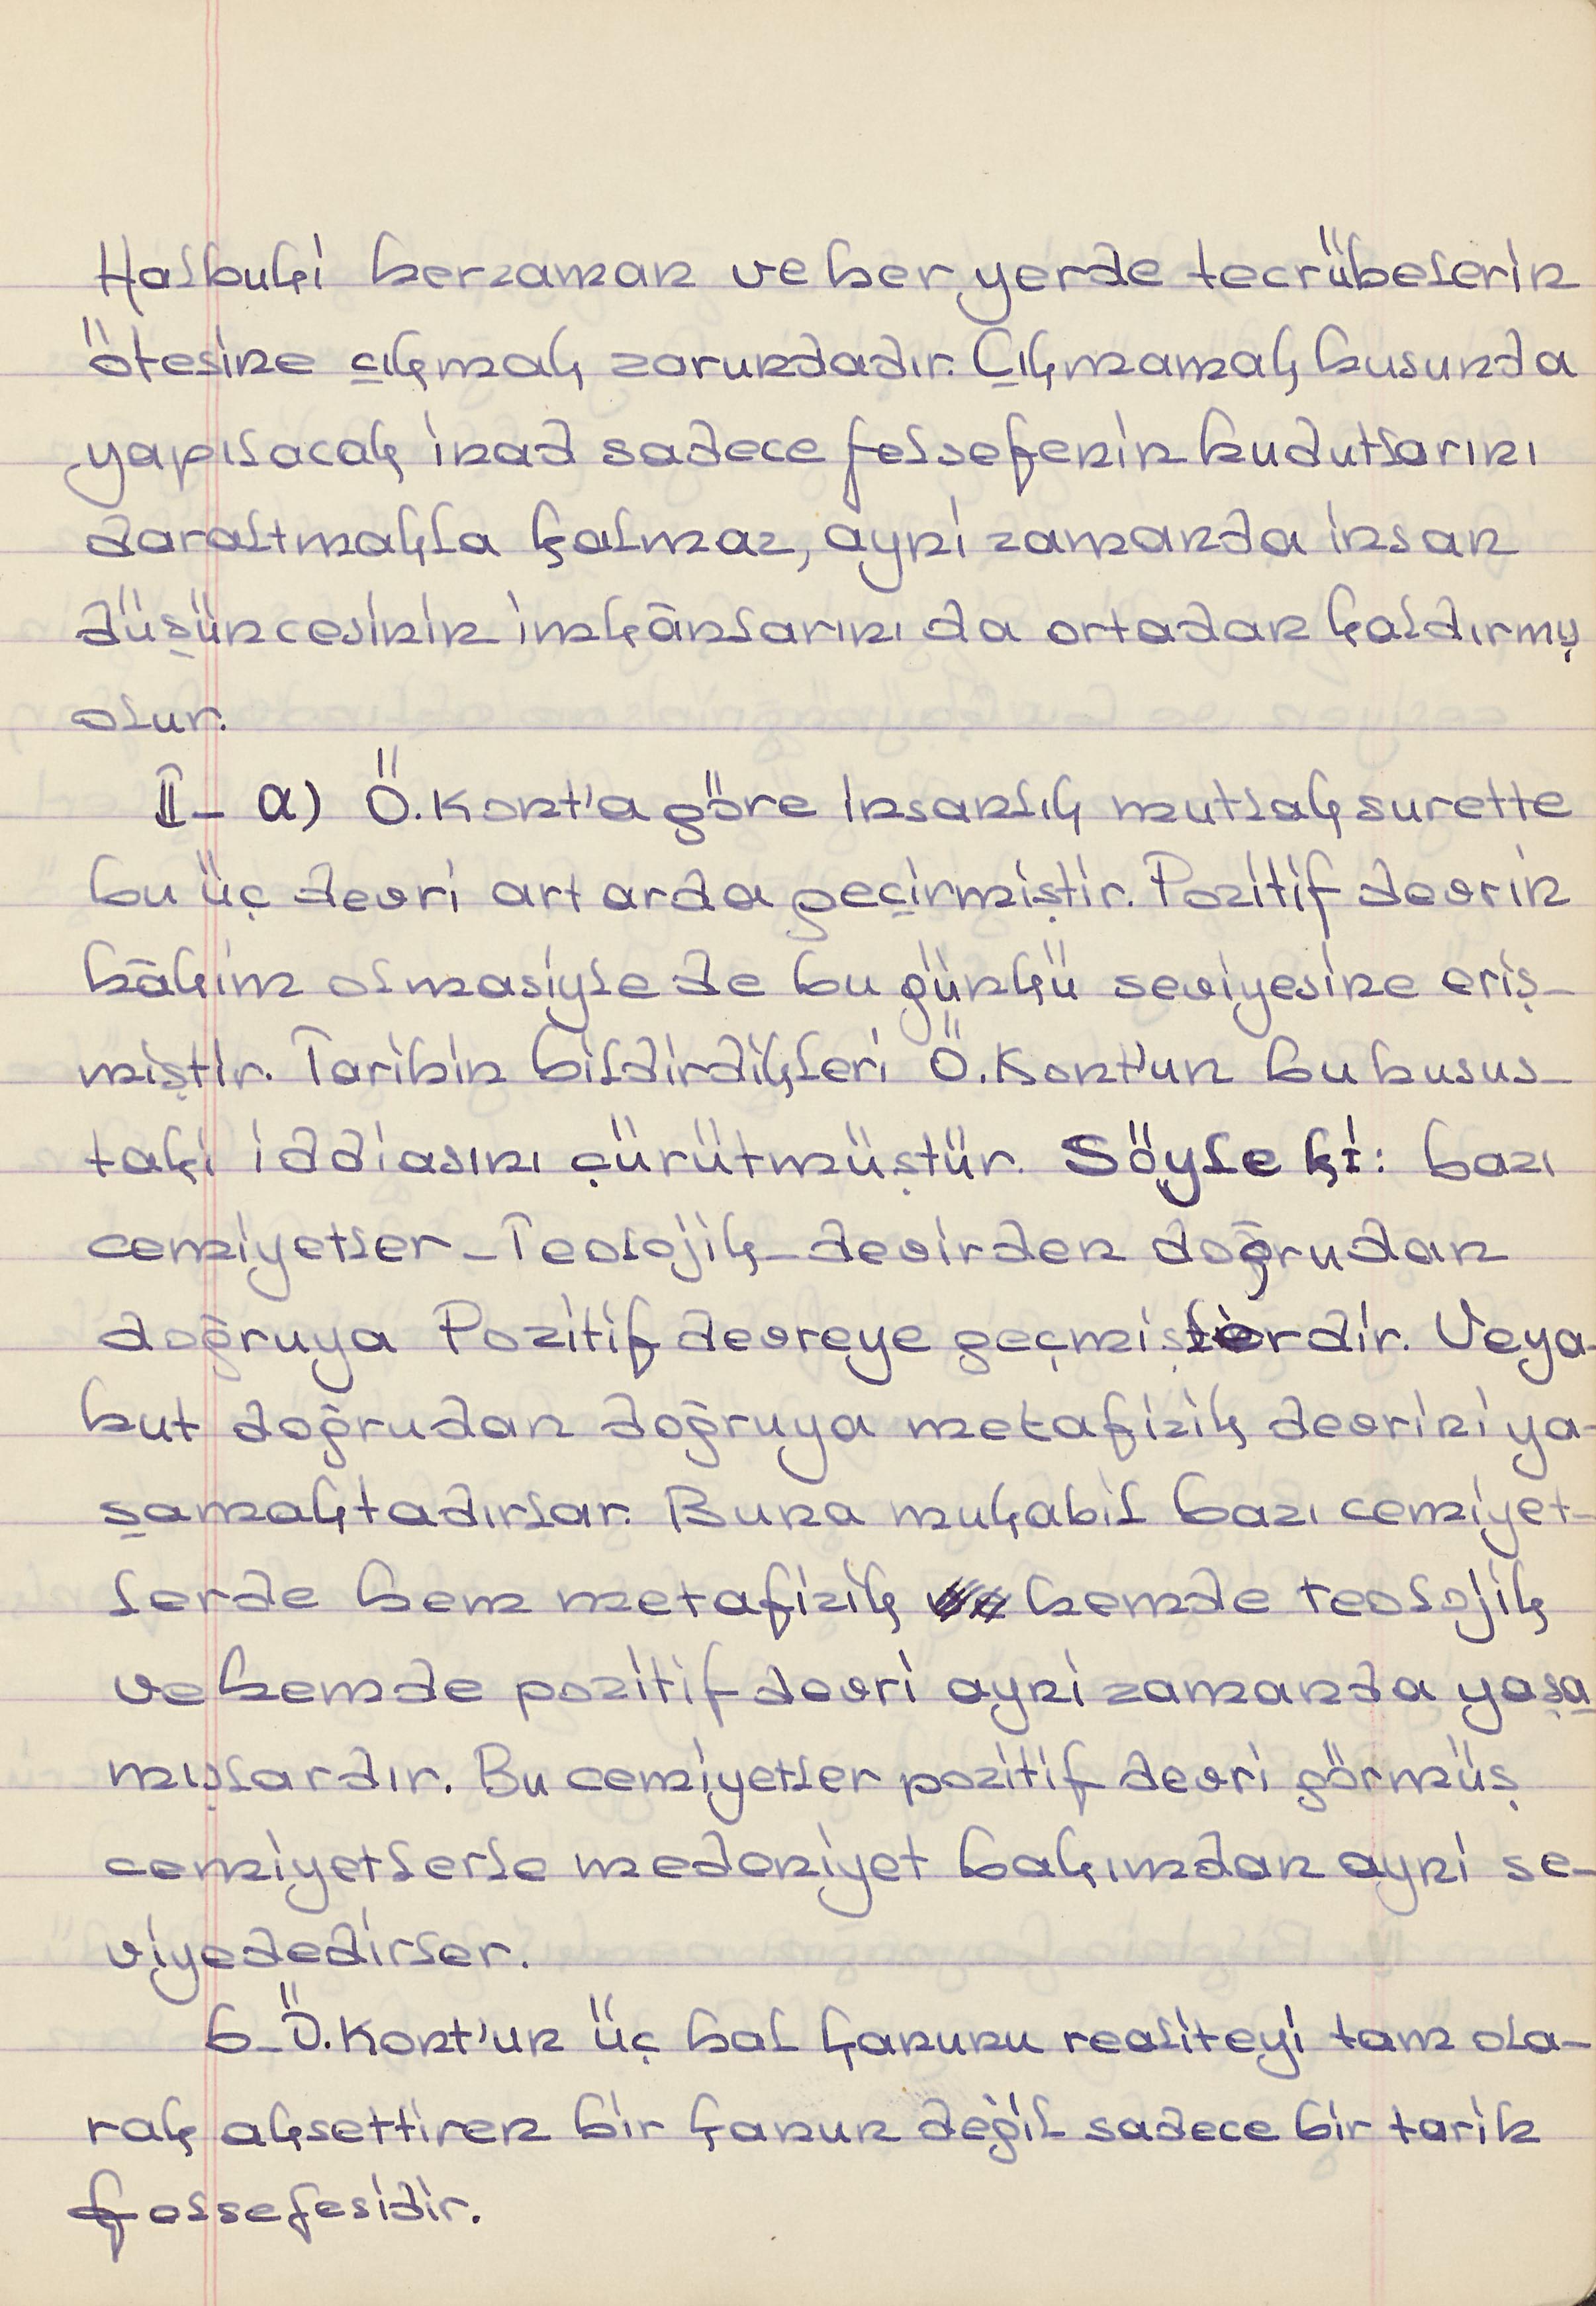 Halbuki herzaman ve her yerde tecrübelerin
ötesine çıkmak zorundadır. Çıkmamak hususunda
yapılacak inad sadece felsefenin hudutlarını
daraltmakla kalmaz, ayni zamanda insan
düşüncesinin imkânlarını da ortadan kaldırmış
olur.
II- a) Ö. Kont'a göre İnsanlık mutlak surette
bu üç devri art arda geçirmiştir. Pozitif devrin
hâkim olmasiyle de bu günkü seviyesine eriş-
miştir. Tarihin bildirdikleri Ö. Kont'un bu husus-
taki iddiasını çürütmüştür. Şöyle ki: bazı
cemiyetler - Teolojik - devirden doğrudan
doğruya Pozitif devreye geçmişlerdir. Veya-
hut doğrudan doğruya metafizik devrini ya-
şamaktadırlar. Buna mukabil bazı cemiyet-
lerde hem metafizik hemde teolojik
ve hemde pozitif devri ayni zamanda yaşa
mışlardır. Bu cemiyetler pozitif devri görmüş
cemiyetlerle medeniyet bakımdan ayni se-
viyededirler.
b- Ö. Kont'un üç hal kanunu realiteyi tam ola-
rak aksettiren bir kanun değil sadece bir tarih
felsefesidir.